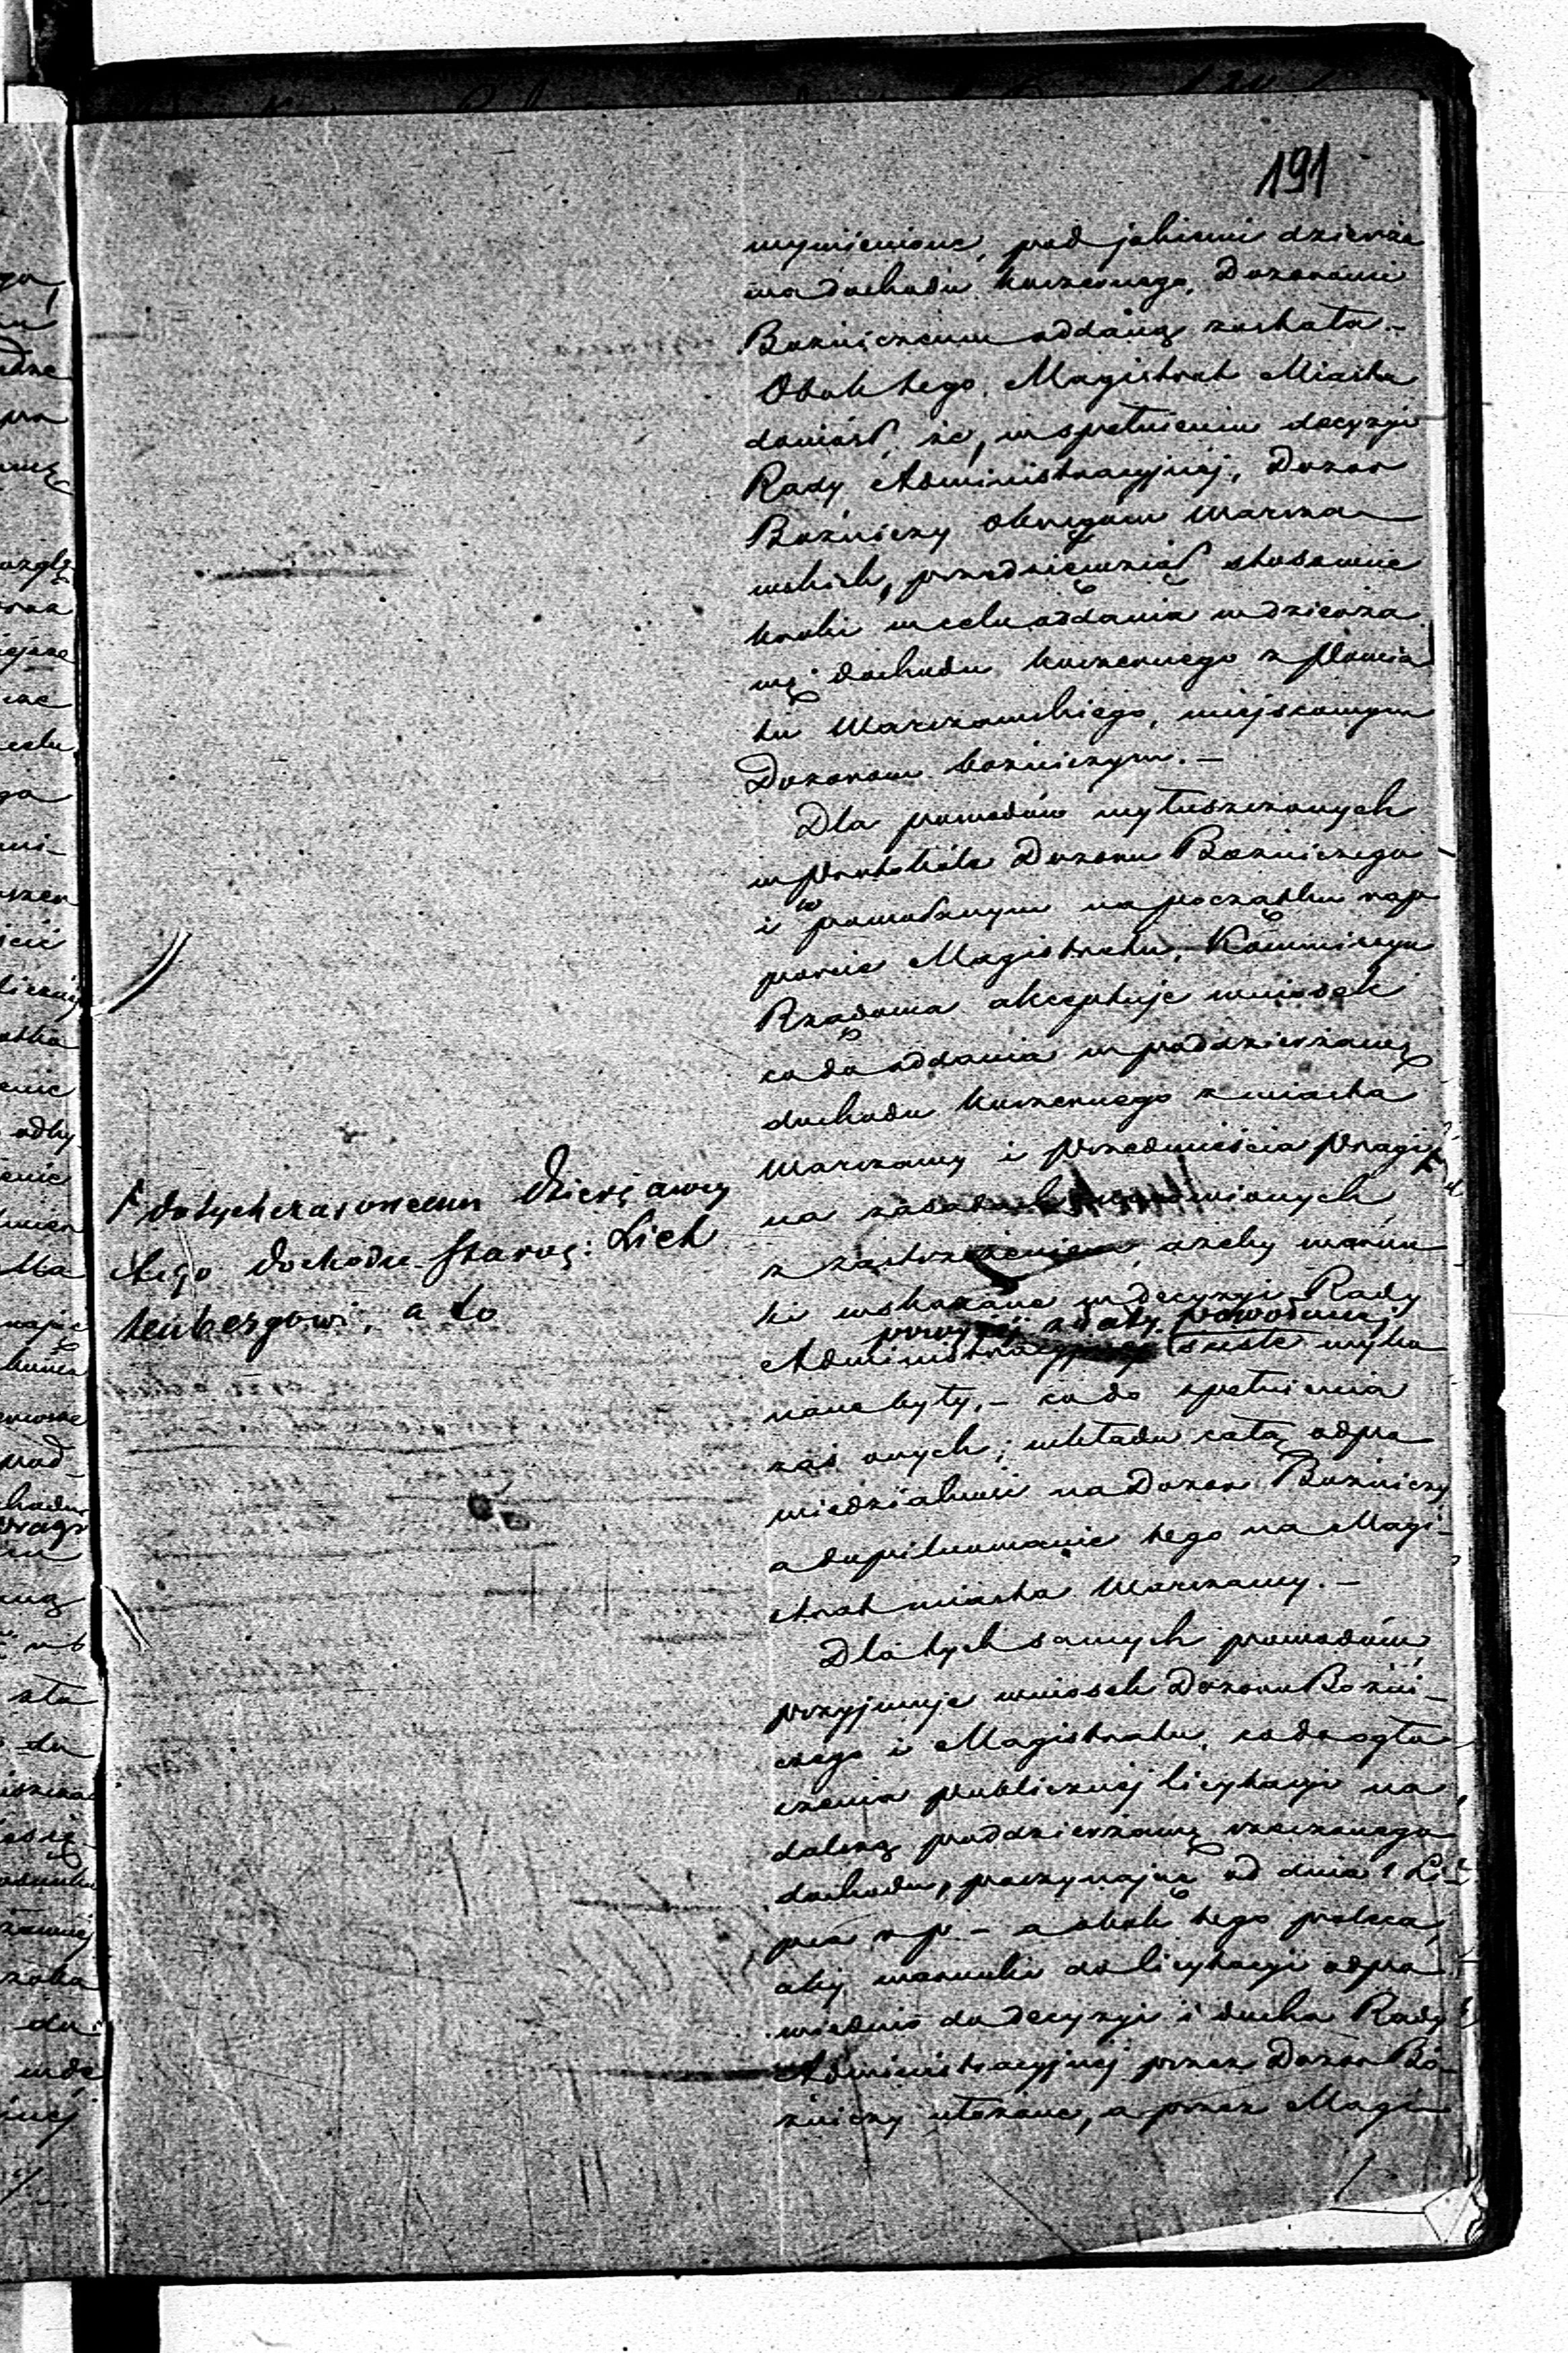 191
wymienione, pod jakiemi dzierża
wa dochodu koszernego, Dozorowi
Bożniczemu oddaną została. –
Obok tego, Magistrat Miasta
doniósł, że, w spełnieniu decyzyi
Rady Administracyjnej, Dozor
Bożniczy Okręgów Warsza-
wskich, przedsięwziął stosowne
kroki w celu oddania w dzierża
wę dochodu koszernego z Powia
tu Warszawskiego, miejscowym
Dozorom bożniczym. –
Dla powodów wyłuszczonych
w Protokóle Dozoru Bożniczego
i w powołanym na początku rap
porcie Magistratu, Kommissya
Rządowa akceptuje wniosek
co do oddania w poddzierżawę
dochodu koszernego z miasta
Warszawy i Przedmieścia Pragi
dotychczasowemu Dzierżawcy
tego dochodu Staroz: Lich
tenbergowi, a to
na zasadach
z zastrzeżeniem, ażeby warun
ki wskazane w decyzyi Rady
Administracyjnej powyżej z daty powołanej ściśle wyko
nane były, – co do spełnienia
zaś onych, wkłada całą odpo
wiedzialność na Dozor Bożniczy
a dopilnowanie tego na Magi-
strat miasta Warszawy. –
Dla tych samych powodów,
przyjmuje wniosek Dozoru Bożni-
czego i Magistratu, co do ogło
szenia publicznej licytacyi na
dalszą poddzierżawę rzeczonego
dochodu, poczynając od dnia 1 Li
pca r. p. – a obok tego poleca,
aby warunki do licytacyi odpo
wiednio do decyzyi i ducha Rady
Administracyjnej przez Dozor Bo-
żniczy ułożone, a przez Magi